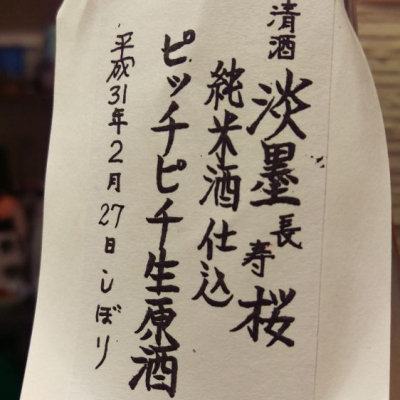 清酒
淡墨長寿桜
純米酒仕込
ピッチピチ生原酒
平成31年2月27日しぼり